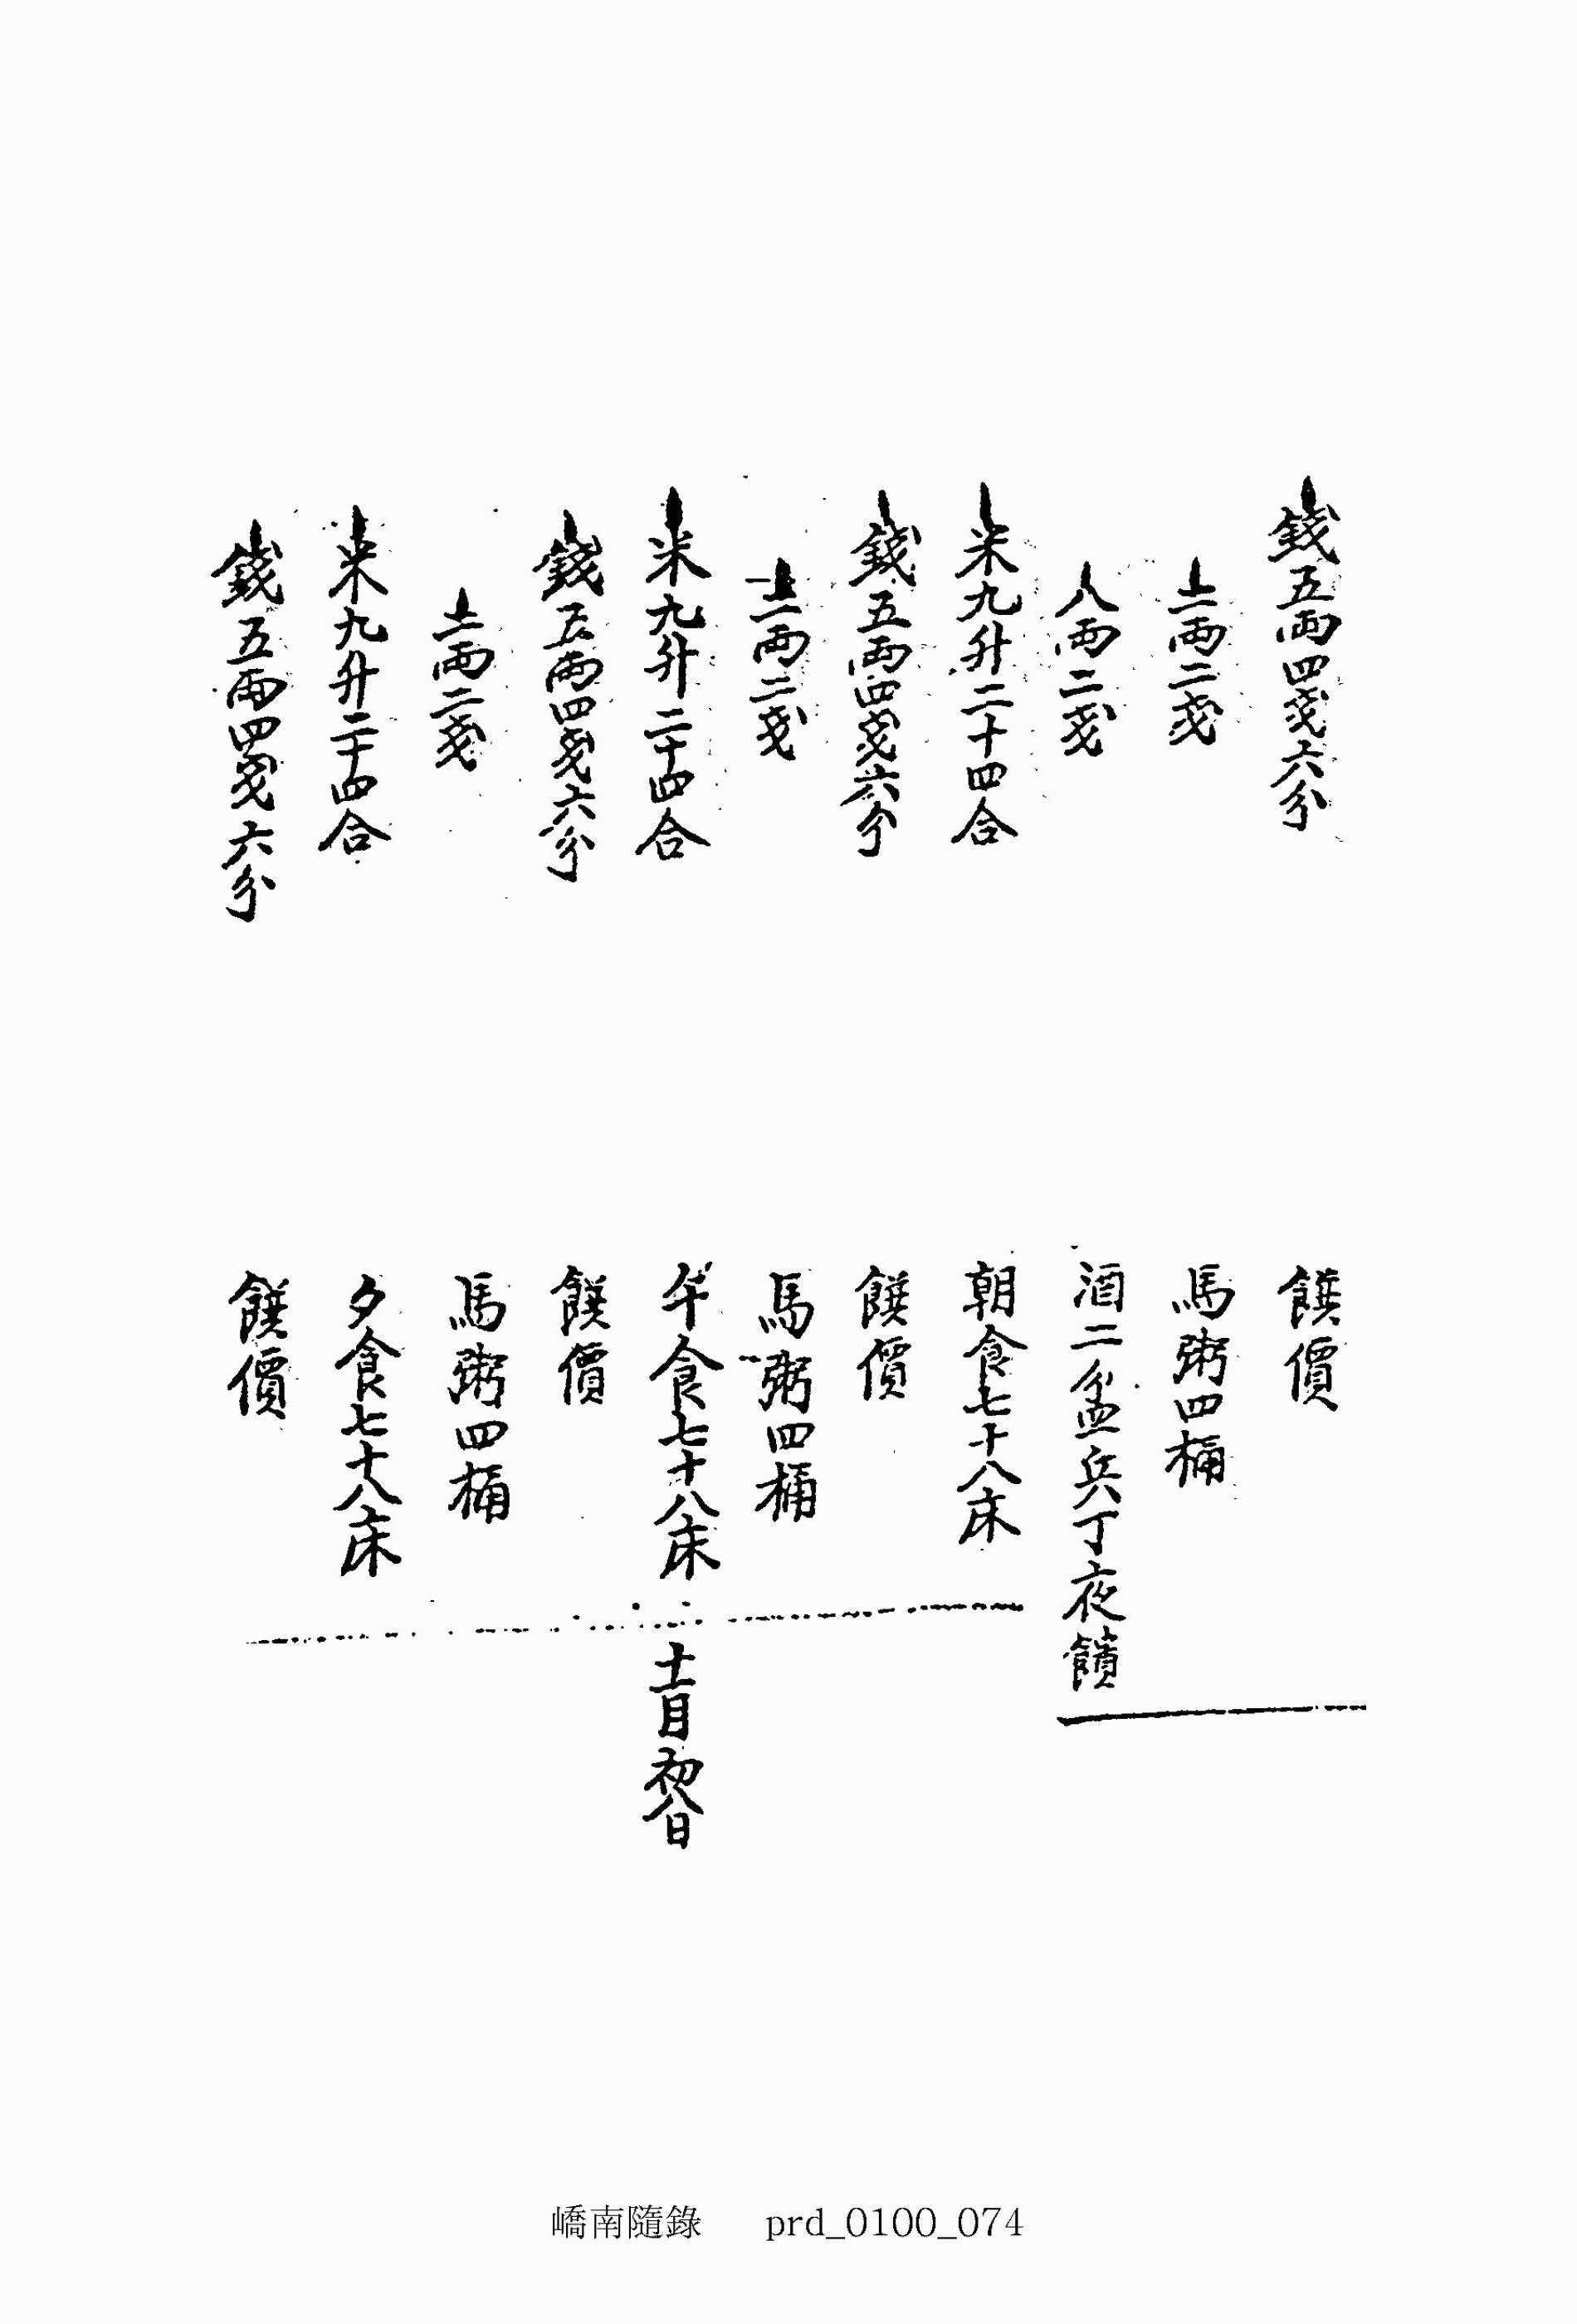 錢五兩四戔六分 饌價
十一兩二戔 馬粥四桶
八兩二戔 酒二盆兵丁夜饋
米九升二十四合 朝食七十八床
錢五兩四戔六分 饌價
十一兩二戔 馬粥四桶
米九升二十四合 午食七十八床 十一月初八日
錢五兩四戔六分 饌價
十一兩二戔 馬粥四桶
米九升二十四合 夕食七十八床
錢五兩四戔六分 饌價
嶠南隨錄 prd_0100_074